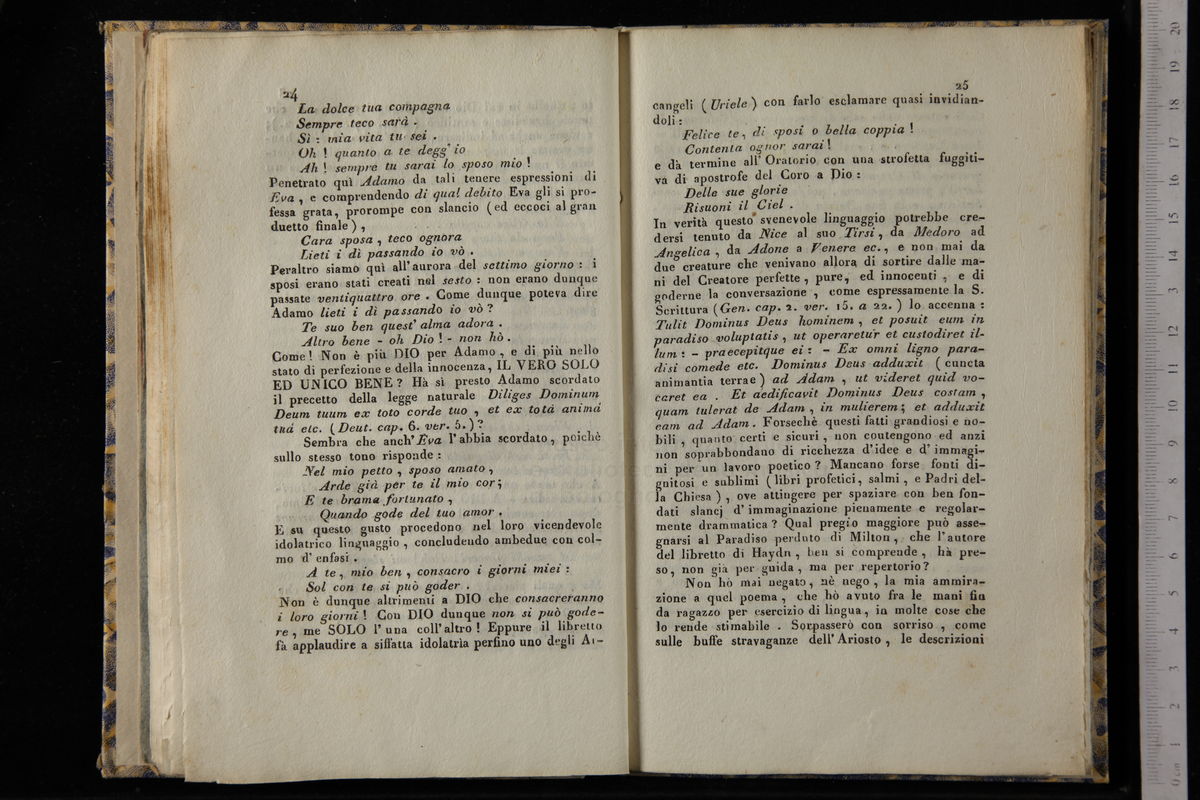 24
La dolce tua compagna
Sempre teco sarà .
Sì : mia vita tu sei .
Oh ! quanto a te degg' io
Ah ! sempre tu sarai lo sposo mio !
Penetrato quì Adamo da tali tenere espressioni di
Eva , e comprendendo di qual debito Eva gli si pro-
fessa grata, prorompe con slancio (ed eccoci al gran
duetto finale ) ,
Cara sposa , teco ognora
Lieti i dì passando io vò .
Peraltro siamo quì all' aurora del settimo giorno : i
sposi erano stati creati nel sesto : non erano dunque
passate ventiquattro ore . Come dunque poteva dire
Adamo lieti i dì passando io vò ?
Te suo ben quest' alma adora .
Altro bene - oh Dio ! - non hò .
Come ! Non è più DIO per Adamo , e di più nello
stato di perfezione e della innocenza, IL VERO SOLO
ED UNICO BENE ? Hà sì presto Adamo scordato
il precetto della legge naturale Diliges Dominum
Deum tuum ex toto corde tuo , et ex totá animá
tuá etc. (Deut. cap. 6. ver. 5. ) ?
Sembra che anch' Eva l' abbia scordato , poichè
sullo stesso tono risponde :
Nel mio petto , sposo amato ,
Arde già per te il mio cor ;
E te brama fortunato ,
Quando gode del tuo amor .
E su questo gusto procedono nel loro vicendevole
idolatrico linguaggio , concludendo ambedue con col-
mo d' enfasi .
A te , mio ben , consacro i giorni miei :
Sol con te si può goder .
Non è dunque altrimenti a DIO che consacreranno
i loro giorni ! Con DIO dunque non si può gode-
re , me SOLO l' una coll' altro ! Eppure il libretto
fà applaudire a siffatta idolatrìa perfino uno degli Ar-
25
cangeli ( Uriele ) con farlo esclamare quasi invidian-
doli :
Felice te , di sposi o bella coppia !
Contenta ognor sarai !
e dà termine all' Oratorio con una strofetta fuggiti-
va di apostrofe del Coro a Dio :
Delle sue glorie
Risuoni il Ciel .
In verità questo svenevole linguaggio potrebbe cre-
dersi tenuto da Nice al suo Tirsi , da Medoro ad
Angelica , da Adone a Venere ec. , e non mai da
due creature che venivano allora di sortire dalle ma-
ni del Creatore perfette , pure, ed innocenti , e di
goderne la conversazione , come espressamente la S.
Scrittura ( Gen. cap. 2. ver. 15. a 22. ) lo accenna :
Tulit Dominus Deus hominem , et posuit eum in
paradiso voluptatis , ut operaretur et custodiret il-
lum : - praecepitque ei : - Ex omni ligno para-
disi comede etc. Dominus Deus adduxit ( cuncta
animantia terrae ) ad Adam , ut videret quid vo-
caret ea . Et aedificavit Dominus Deus costam ,
quam tulerat de Adam , in mulierem ; et adduxit
eam ad Adam . Forsechè questi fatti grandiosi e no-
bili , quanto certi e sicuri , non contengono ed anzi
non soprabbondano di ricchezza d' idee e d' immagi-
ni per un lavoro poetico ? Mancano forse fonti di-
gnitosi e sublimi ( libri profetici, salmi , e Padri del-
la Chiesa ) , ove attingere per spaziare con ben fon-
dati slancj d' immaginazione pienamente e regolar-
mente drammatica ? Qual pregio maggiore può asse-
gnarsi al Paradiso perduto di Milton , che l' autore
del libretto di Haydn , ben si comprende , hà pre-
so , non già per guida , ma per repertorio ?
Non hò mai negato , nè nego , la mia ammira-
zione a quel poema , che hò avuto fra le mani fin
da ragazzo per esercizio di lingua , in molte cose che
lo rende stimabile . Sorpasserò con sorriso , come
sulle buffe stravaganze dell' Ariosto , le descrizioni
0 cm 1 2 3 4 5 6 7 8 9 10 11 12 13 14 15 16 17 18 19 20